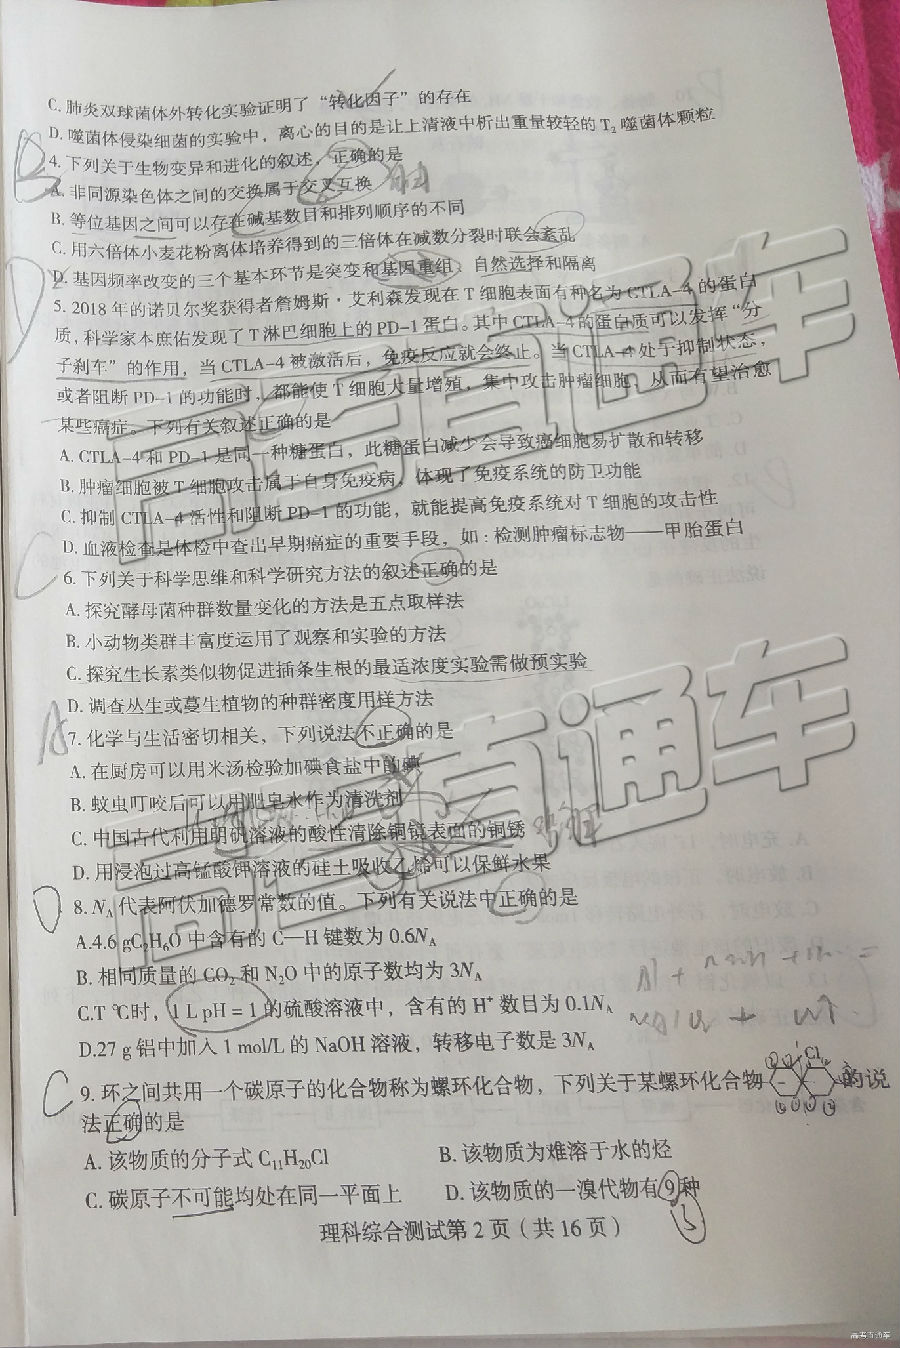 C. 肺炎双球菌体外转化实验证明了“转化因子”的存在
D. 噬菌体侵染细菌的实验中，离心的目的是让上清液中析出重量较轻的T₂噬菌体颗粒
B
4. 下列关于生物变异和进化的叙述，正确的是
A. 非同源染色体之间的交换属于交叉互换
B. 等位基因之间可以存在碱基数目和排列顺序的不同
C. 用六倍体小麦花粉离体培养得到的三倍体在减数分裂时联会紊乱
D. 基因频率改变的三个基本环节是突变和基因重组、自然选择和隔离
D
5. 2018年的诺贝尔奖获得者詹姆斯·艾利森发现在T细胞表面有种名为CTLA-4的蛋白
质，科学家本庶佑发现了T淋巴细胞上的PD-1蛋白。其中CTLA-4的蛋白质可以发挥“分
子刹车”的作用，当CTLA-4被激活后，免疫反应就会终止。当CTLA-4处于抑制状态，
或者阻断PD-1的功能时，都能使T细胞大量增殖，集中攻击肿瘤细胞，从而有望治愈
某些癌症。下列有关叙述正确的是
A. CTLA-4和PD-1是同一种糖蛋白，此糖蛋白减少会导致癌细胞易扩散和转移
B. 肿瘤细胞被T细胞攻击属于自身免疫病，体现了免疫系统的防卫功能
C. 抑制CTLA-4活性和阻断PD-1的功能，就能提高免疫系统对T细胞的攻击性
D. 血液检查是体检中查出早期癌症的重要手段，如：检测肿瘤标志物——甲胎蛋白
C
6. 下列关于科学思维和科学研究方法的叙述正确的是
A. 探究酵母菌种群数量变化的方法是五点取样法
B. 小动物类群丰富度运用了观察和实验的方法
C. 探究生长素类似物促进插条生根的最适浓度实验需做预实验
D. 调查丛生或蔓生植物的种群密度用样方法
A
7. 化学与生活密切相关，下列说法不正确的是
A. 在厨房可以用米汤检验加碘食盐中的碘
B. 蚊虫叮咬后可以用肥皂水作为清洗剂
C. 中国古代利用明矾溶液的酸性清除铜镜表面的铜锈
D. 用浸泡过高锰酸钾溶液的硅土吸收乙烯可以保鲜水果
D
8. Nₐ代表阿伏加德罗常数的值。下列有关说法中正确的是
A.4.6 gC₂H₆O中含有的C—H键数为0.6Nₐ
B. 相同质量的CO₂和N₂O中的原子数均为3Nₐ
C.T ℃时，1 L pH=1的硫酸溶液中，含有的H⁺数目为0.1Nₐ
D.27 g铝中加入1 mol/L的NaOH溶液，转移电子数是3Nₐ
C
9. 环之间共用一个碳原子的化合物称为螺环化合物，下列关于某螺环化合物 Cl 的说
法正确的是
A. 该物质的分子式C₁₁H₂₀Cl B. 该物质为难溶于水的烃
C. 碳原子不可能均处在同一平面上 D. 该物质的一溴代物有9种
理科综合测试第2页（共16页）
高考直通车
高考直通车
高考直通车